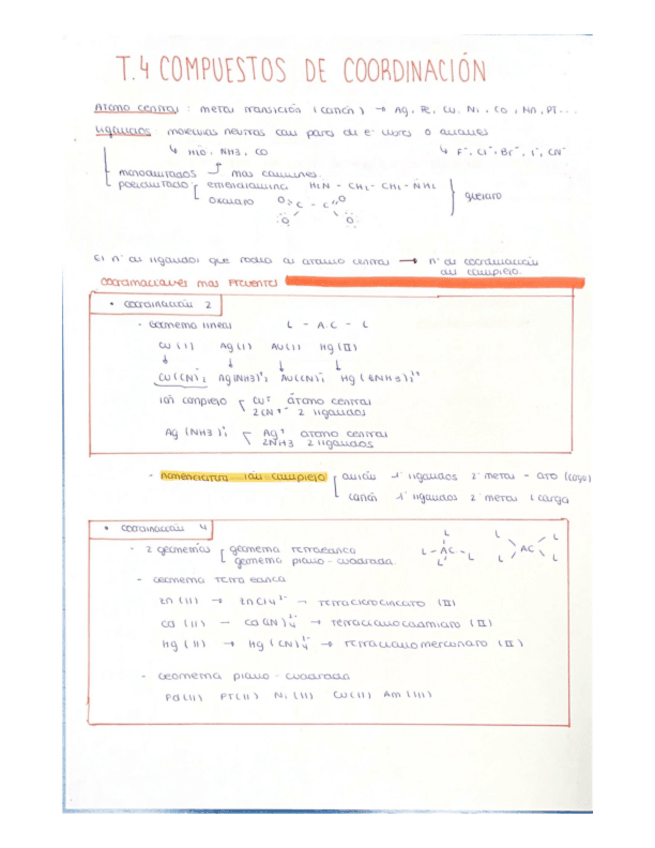 T.4 COMPUESTOS DE COORDINACIÓN
Átomo central: metal transición (catión) → Ag, Fe, Cu, Ni, Co, Mn, PT...
Ligandos: moléculas neutras con pares de e⁻ libres o aniones
↳ H2O, NH3, CO ↳ F⁻, Cl⁻, Br⁻, I⁻, CN⁻
monodentados → mas comunes.
polidentado etilendiamina H2N - CH2 - CH2 - NH2
oxalato O C - C O O O quelato
El nº de ligandos que rodea al átomo central → nº de coordinación
del complejo.
COORDINACIONES MAS FRECUENTES
• coordinación 2
- Geometría lineal L - A.C - L
Cu (I) Ag (I) Au (I) Hg (II)
↓ ↓ ↓ ↓
Cu(CN)₂⁻ Ag(NH3)₂⁺ Au(CN)₂⁻ Hg(NH3)₂²⁺
ión complejo Cu⁺ átomo central
2CN⁻ 2 ligandos
Ag (NH3)₂⁺ Ag⁺ átomo central
2NH3 2 ligandos
- nomenclatura ión complejo anión 1º ligandos 2º metal - ato (carga)
catión 1º ligandos 2º metal (carga
• coordinación 4
- 2 geometrías geometría tetraédrica
geometría plano-cuadrada.
L L - AC - L L
L L AC L L
- Geometría tetraédrica
Zn (II) → ZnCl4²⁻ → tetraclorocincato (II)
Cd (II) → Cd(CN)₄²⁻ → tetracianocadmiato (II)
Hg (II) → Hg(CN)₄²⁻ → tetracianomercuriato (II)
- Geometría plano-cuadrada
Pd(II) PT(II) Ni(II) Cu(II) Am(III)